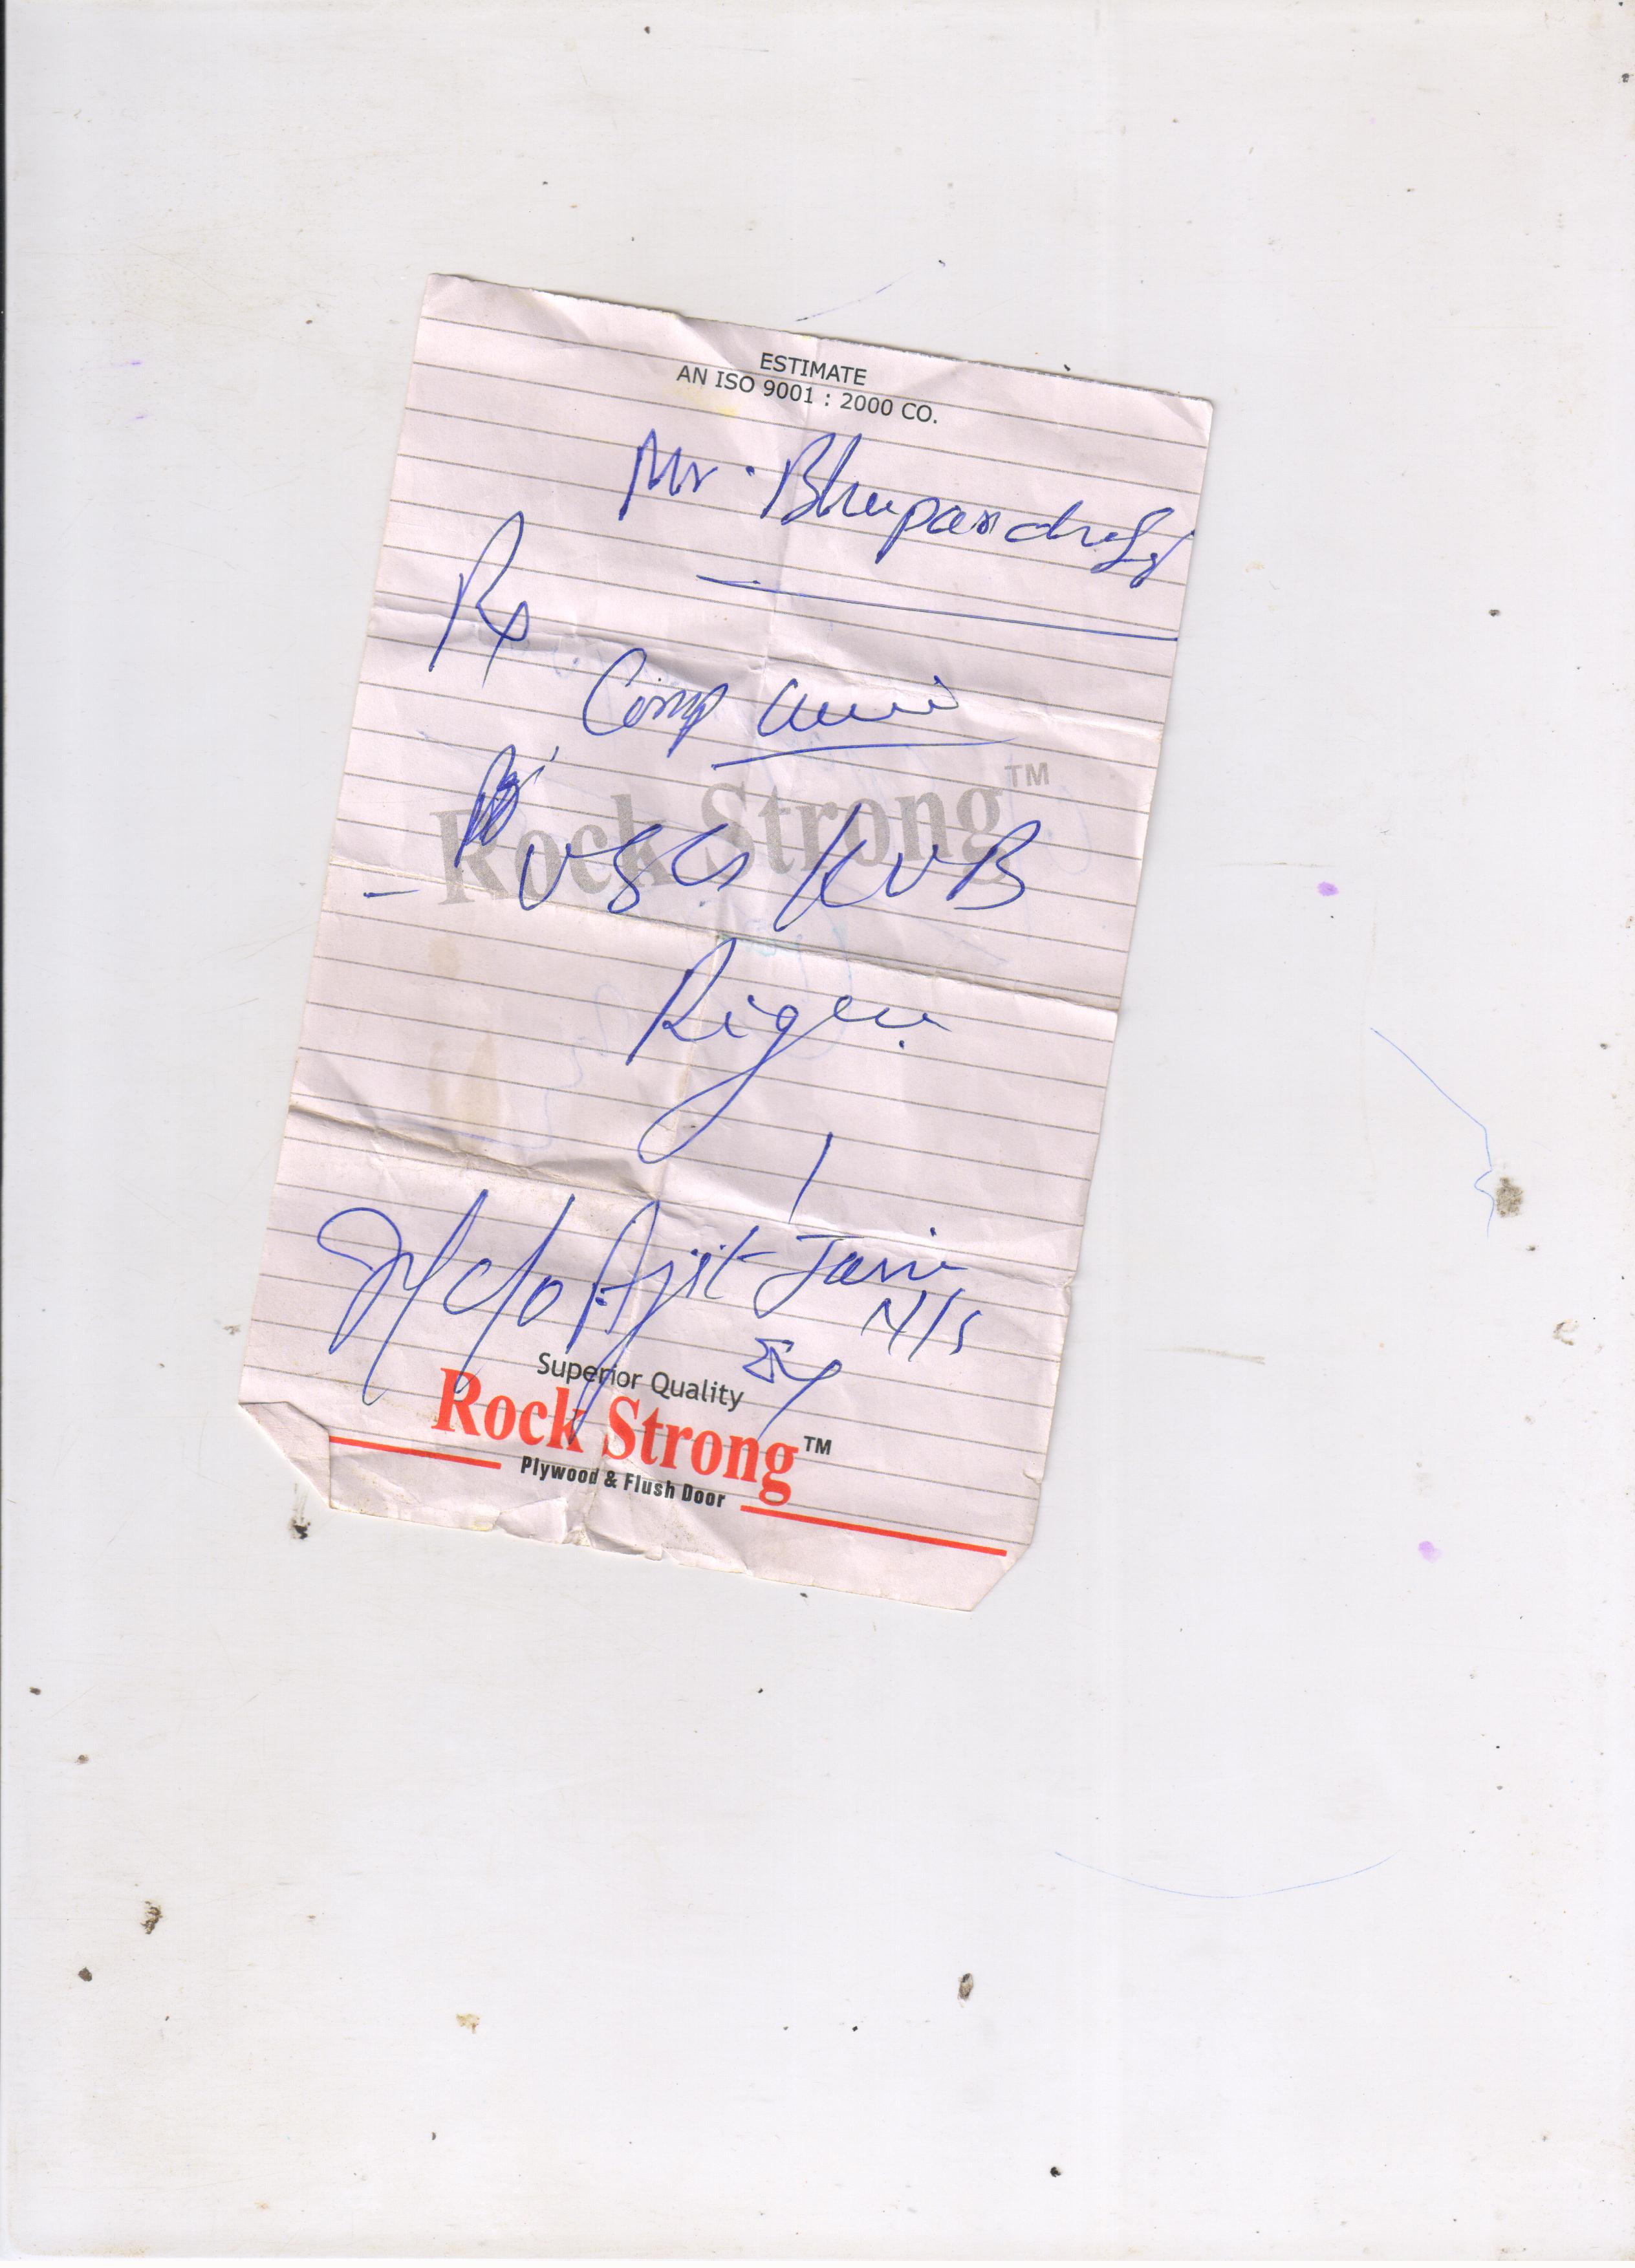 ESTIMATE
AN ISO 9001 : 2000 CO.
Mr. Bhupandra
Rx
Comp
Rock Strong™
- USG KUB
c/o Ajit Jain
N/S
Superior Quality
Rock Strong™
Plywood & Flush Door